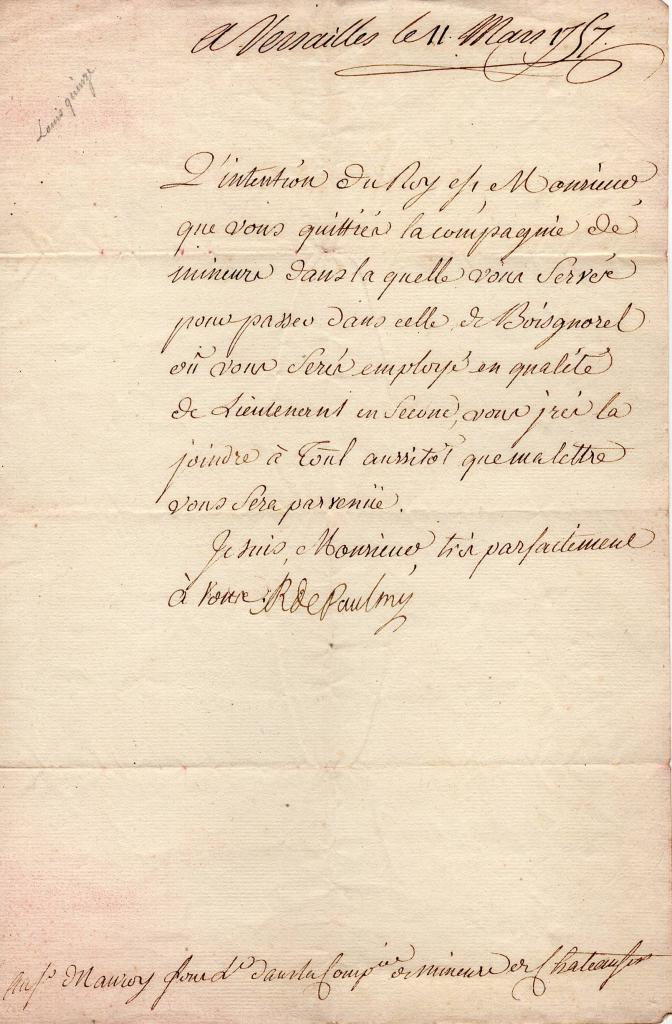 A Versailles le 11. Mars 1757.
Louis quinze
L'intention du Roy est, Monsieur,
que vous quittiés la compagnie de
mineurs dans la quelle vous servés
pour passer dans celle de Boisgnorel
où vous serés employé en qualité
de Lieutenant en second, vous jrés la
joindre à Toul aussitôt que ma lettre
vous sera parvenüe.
Je suis, Monsieur, très parfaitement
à vous. R de Paulmy
Au Sr. Mauroy Sous Lt. dans la Comp.ie de mineurs de Chateaufer